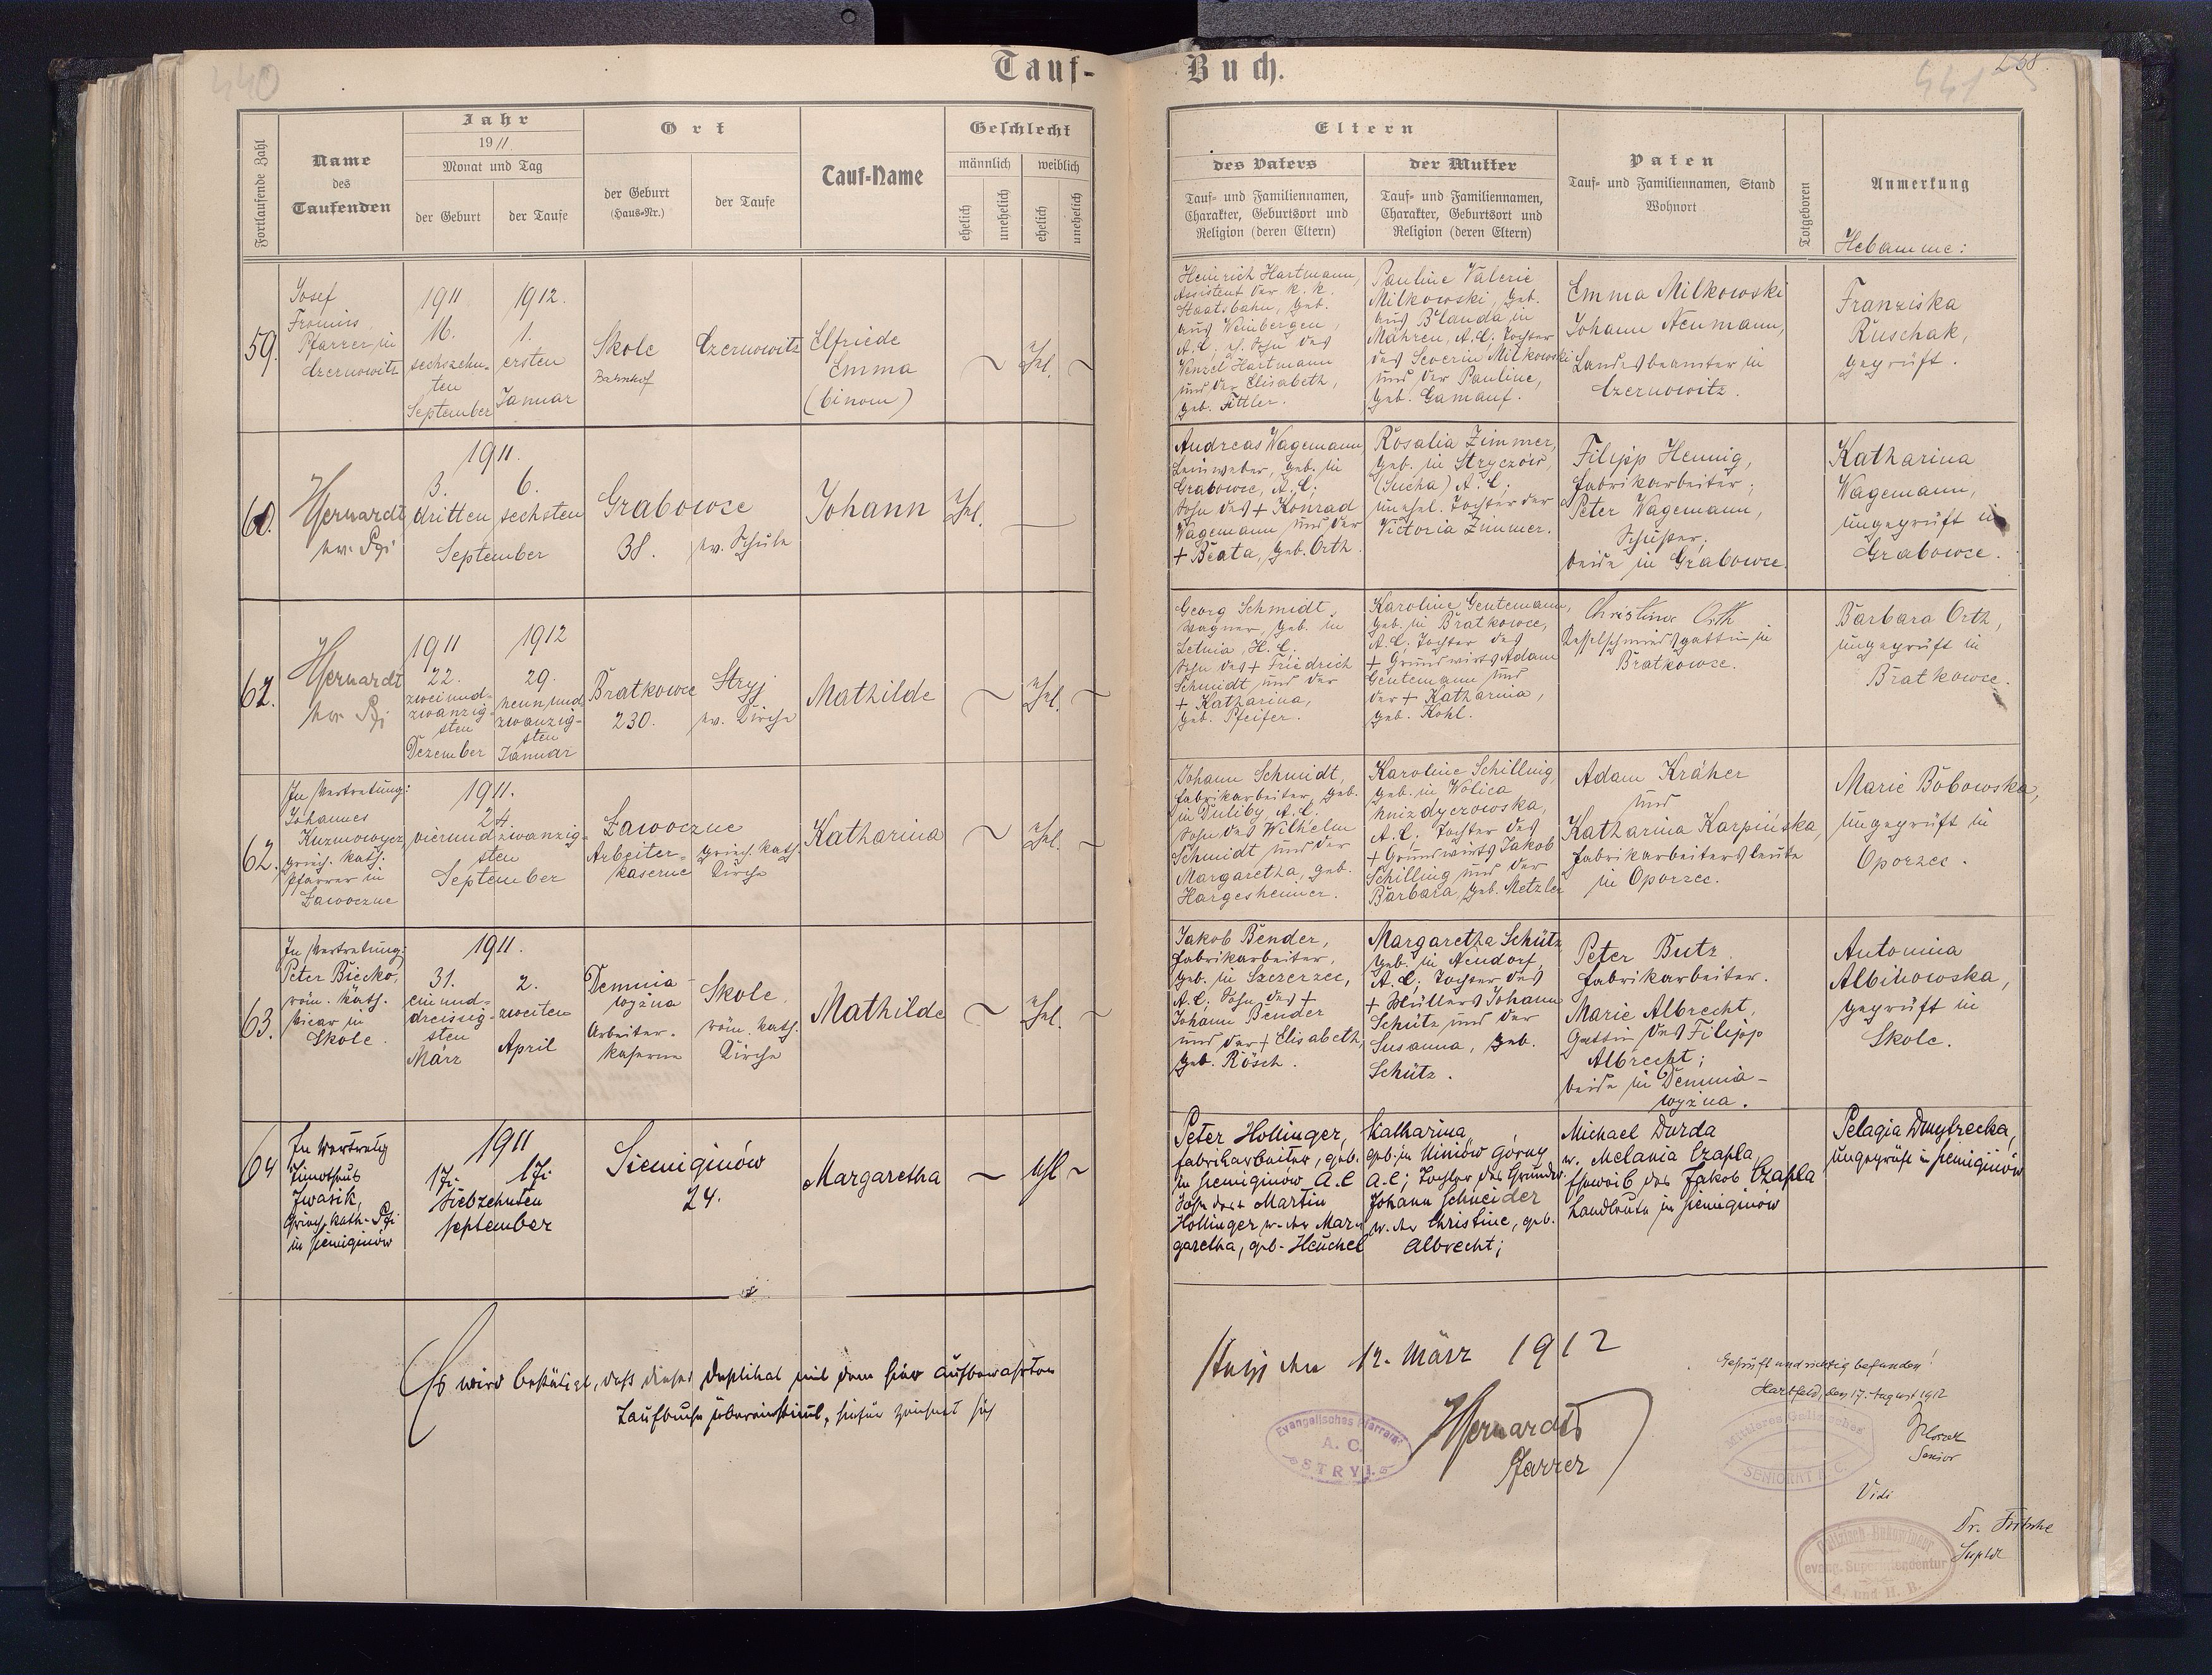 440
Tauf-
Fortlaufende Zahl
Name
des
Taufenden
Jahr
1911.
Monat und Tag
der Geburt
der Taufe
Ort
der Geburt
(Haus-Nr.)
der Taufe
Tauf-Name
Geschlecht
männlich
weiblich
ehelich
unehelich
ehelich
unehelich
59.
Josef
Fronius
Pfarrer in
Czernowitz
1911
16.
sechszehn-
ten
September
1912.
1.
ersten
Januar
Skole
Bahnhof
Czernowitz
Elfriede
Emma
(binom)
~
Ehel.
~
60.
Hernardt
ev. Pfr
1911.
3.
dritten
6.
sechsten
September
Grabowce
38.
ev. Schule
Johann
Ehel.
62.
Hernardt
ev. Pfr
1911
22.
zweiund-
zwanzig-
sten
Dezember
1912
29.
neunund
zwanzig-
sten
Januar
Bratkowce
230.
Stryj
ev. Kirche
Mathilde
~
Ehel.
~
62.
In Vertretung:
Johannes
Kuzmowycz
griech. kath.
Pfarrer in
Ławoczne
1911.
24.
vierundzwanzig-
sten
September
Ławoczne
Arbeiter-
kaserne
griech. kath.
Kirche
Katharina
~
Ehel.
~
63.
In Vertretung:
Peter Biecko,
röm. kath.
Vicar in
Skole.
1911.
31.
einund-
dreissig-
sten
März
2.
zweiten
April
Demnia
wyżna
Arbeiter-
kaserne
Skole.
röm. kath.
Kirche
Mathilde
~
Ehel.
~
64
In Vertretung
Timotheus
Iwasik,
Griech. kath. Pfr
in Siemiginów
1911
17.
17.
Siebzehnten
September
Siemiginów
24.
Margaretha
~
Ehl
~
Es wird bestätigt, daß dieses Duplikat mit dem hier aufbewahrten
Taufbuche übereinstimmt, hiefür zeichnet sich
Buch.
441
Eltern
des Vaters
Tauf- und Familiennamen,
Charakter, Geburtsort und
Religion (deren Eltern)
der Mutter
Tauf- und Familiennamen,
Charakter, Geburtsort und
Religion (deren Eltern)
Paten
Tauf- und Familiennamen, Stand
Wohnort
Totgeboren
Anmerkung
Hebamme:
Heinrich Hartmann,
Assistent der k. k.
Staatsbahn, geb.
aus Weinbergen,
A.C., Sohn des
Wenzel Hartmann
und der Elisabeth,
geb. Fittler.
Pauline Valerie
Milkowski, geb.
aus Blauda in
Mähren, A.C., Tochter
des Severin Milkowski
und der Pauline,
geb. Gamauf.
Emma Milkowski
Johann Neumann,
Landesbeamter in
Czernowitz.
Franziska
Ruschak,
geprüft.
Andreas Wagemann,
Leinweber, geb. in
Grabowce, A.C.;
Sohn des + Konrad
Wagemann und der
+ Beata, geb. Orth.
Rosalia Zimmer,
geb. in Stryczów,
(Sucha) A.C.;
unehel. Tochter der
Victoria Zimmer.
Filipp Hennig,
Fabrikarbeiter;
Peter Wagemann,
Schuster;
beide in Grabowce.
Katharina
Wagemann,
ungeprüft in
Grabowce.
Georg Schmidt,
Wagner, geb. in
Letnia, H.C.
Sohn des + Friedrich
Schmidt und der
+ Katharina,
geb. Pfeifer.
Karoline Gentemann,
geb. in Bratkowce,
A.C. Tochter des
+ Grundwirts Adam
Gentemann und
der + Katharina,
geb. Kohl.
Christine Orth
Kesselschmiedsgattin in
Bratkowce.
Barbara Orth,
ungeprüft in
Bratkowce.
Johann Schmidt,
Fabrikarbeiter, geb.
in Duliby, A.C.
Sohn des Wilhelm
Schmidt und der
Margaretha, geb.
Hargesheimer.
Karoline Schilling,
geb. in Wolica
hnizdyczowska,
A.C. Tochter des
+ Grundwirts Jakob
Schilling und der
Barbara, geb. Metzler
Adam Kräher
und
Katharina Karpińska,
Fabrikarbeitersleute
in Oporzec.
Marie Bobowska,
ungeprüft in
Oporzec.
Jakob Bender,
Fabrikarbeiter,
geb. in Szczerzec,
A.C; Sohn des +
Johann Bender
und der + Elisabeth,
geb. Rösch.
Margaretha Schütz
geb. in Neudorf,
A.C; Tochter des
+ Müllers Johann
Schütz und der
Susanna, geb.
Schütz.
Peter Butz
Fabrikarbeiter.
Marie Albrecht,
Gattin des Filipp
Albrecht;
beide in Demnia-
wyżna.
Antonina
Albinowska,
geprüft in
Skole.
Peter Hollinger,
Fabrikarbeiter, geb.
in Siemiginów A.C
Sohn des + Martin
Hollinger u. der Mar-
garetha, geb. Heuchel
Katharina,
geb. in Uiniów Górny
A.C; Tochter des Grundw.
Johann Schneider
u. der Christine, geb.
Albrecht;
Michael Durda
u. Melania Czapla,
Eheweib des Jakob Czapla
Landleute in Siemiginów
Pelagia Dmytrecka,
ungeprüft in Siemiginów
Stryj den 12. März 1912
Hernardt
Pfarrer
Evangelisches Pfarramt
A. C.
STRYJ
Geprüft und richtig befunden!
Hartfeld, den 17. August 1912
Senior
Mittleres Galizisches
SENIORAT A. C.
Vidi
Dr. Fritsche
Suptdt
Galizisch-Bukowinaer
evang. Superintendentur
A. und H. B.